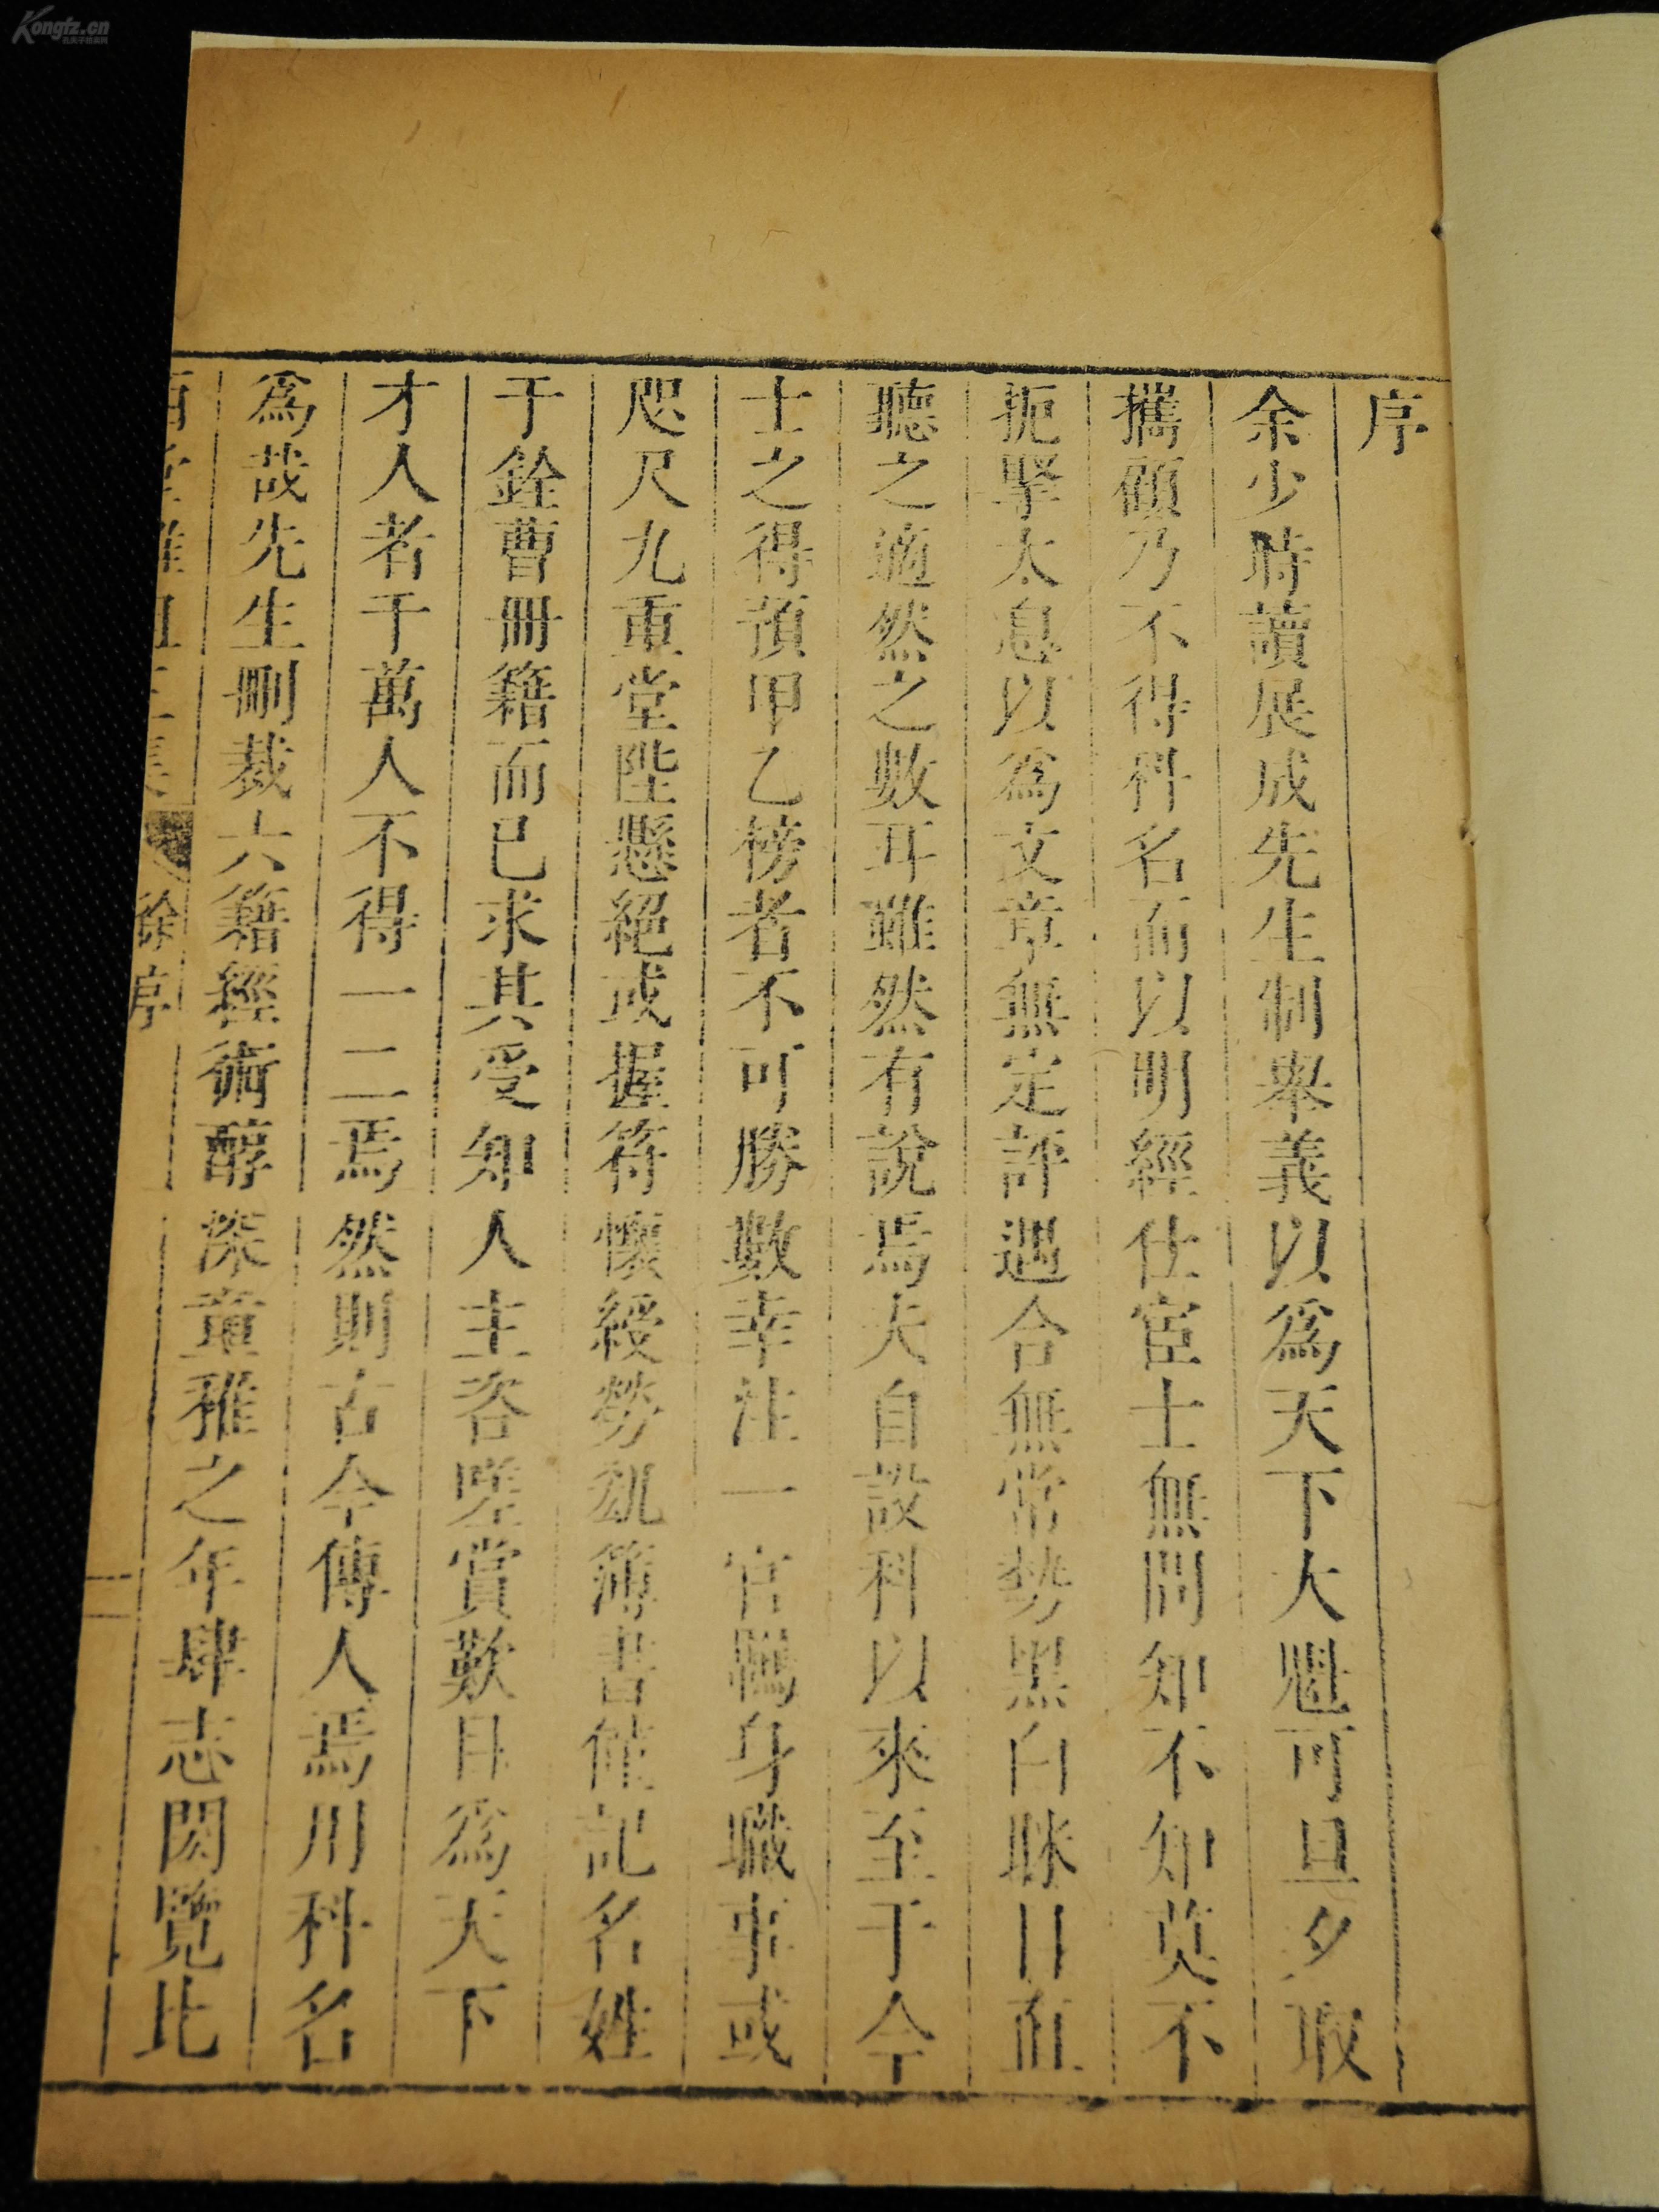 序
余少時讀展成先生制舉義以爲天下大魁可旦夕取
攜顧乃不得科名而以明經仕宦士無問知不知莫不
扼擥太息以爲文章無定評遇合無常勢黑白眯目而
聽之適然之數耳雖然有說焉夫自設科以來至于今
士之得預甲乙榜者不可勝數幸注一官羈身職事或
咫尺九重堂陛懸絕或握符懷綬勞勩簿書僅記名姓
于銓曹冊籍而已求其受知人主咨嗟賞歎目爲天下
才人者千萬人不得一二焉然則古今傳人焉用科名
爲哉先生刪裁六籍經術醇深童稚之年肆志閎覽比
西堂雜俎三集 徐序 一
Kongfz.cn